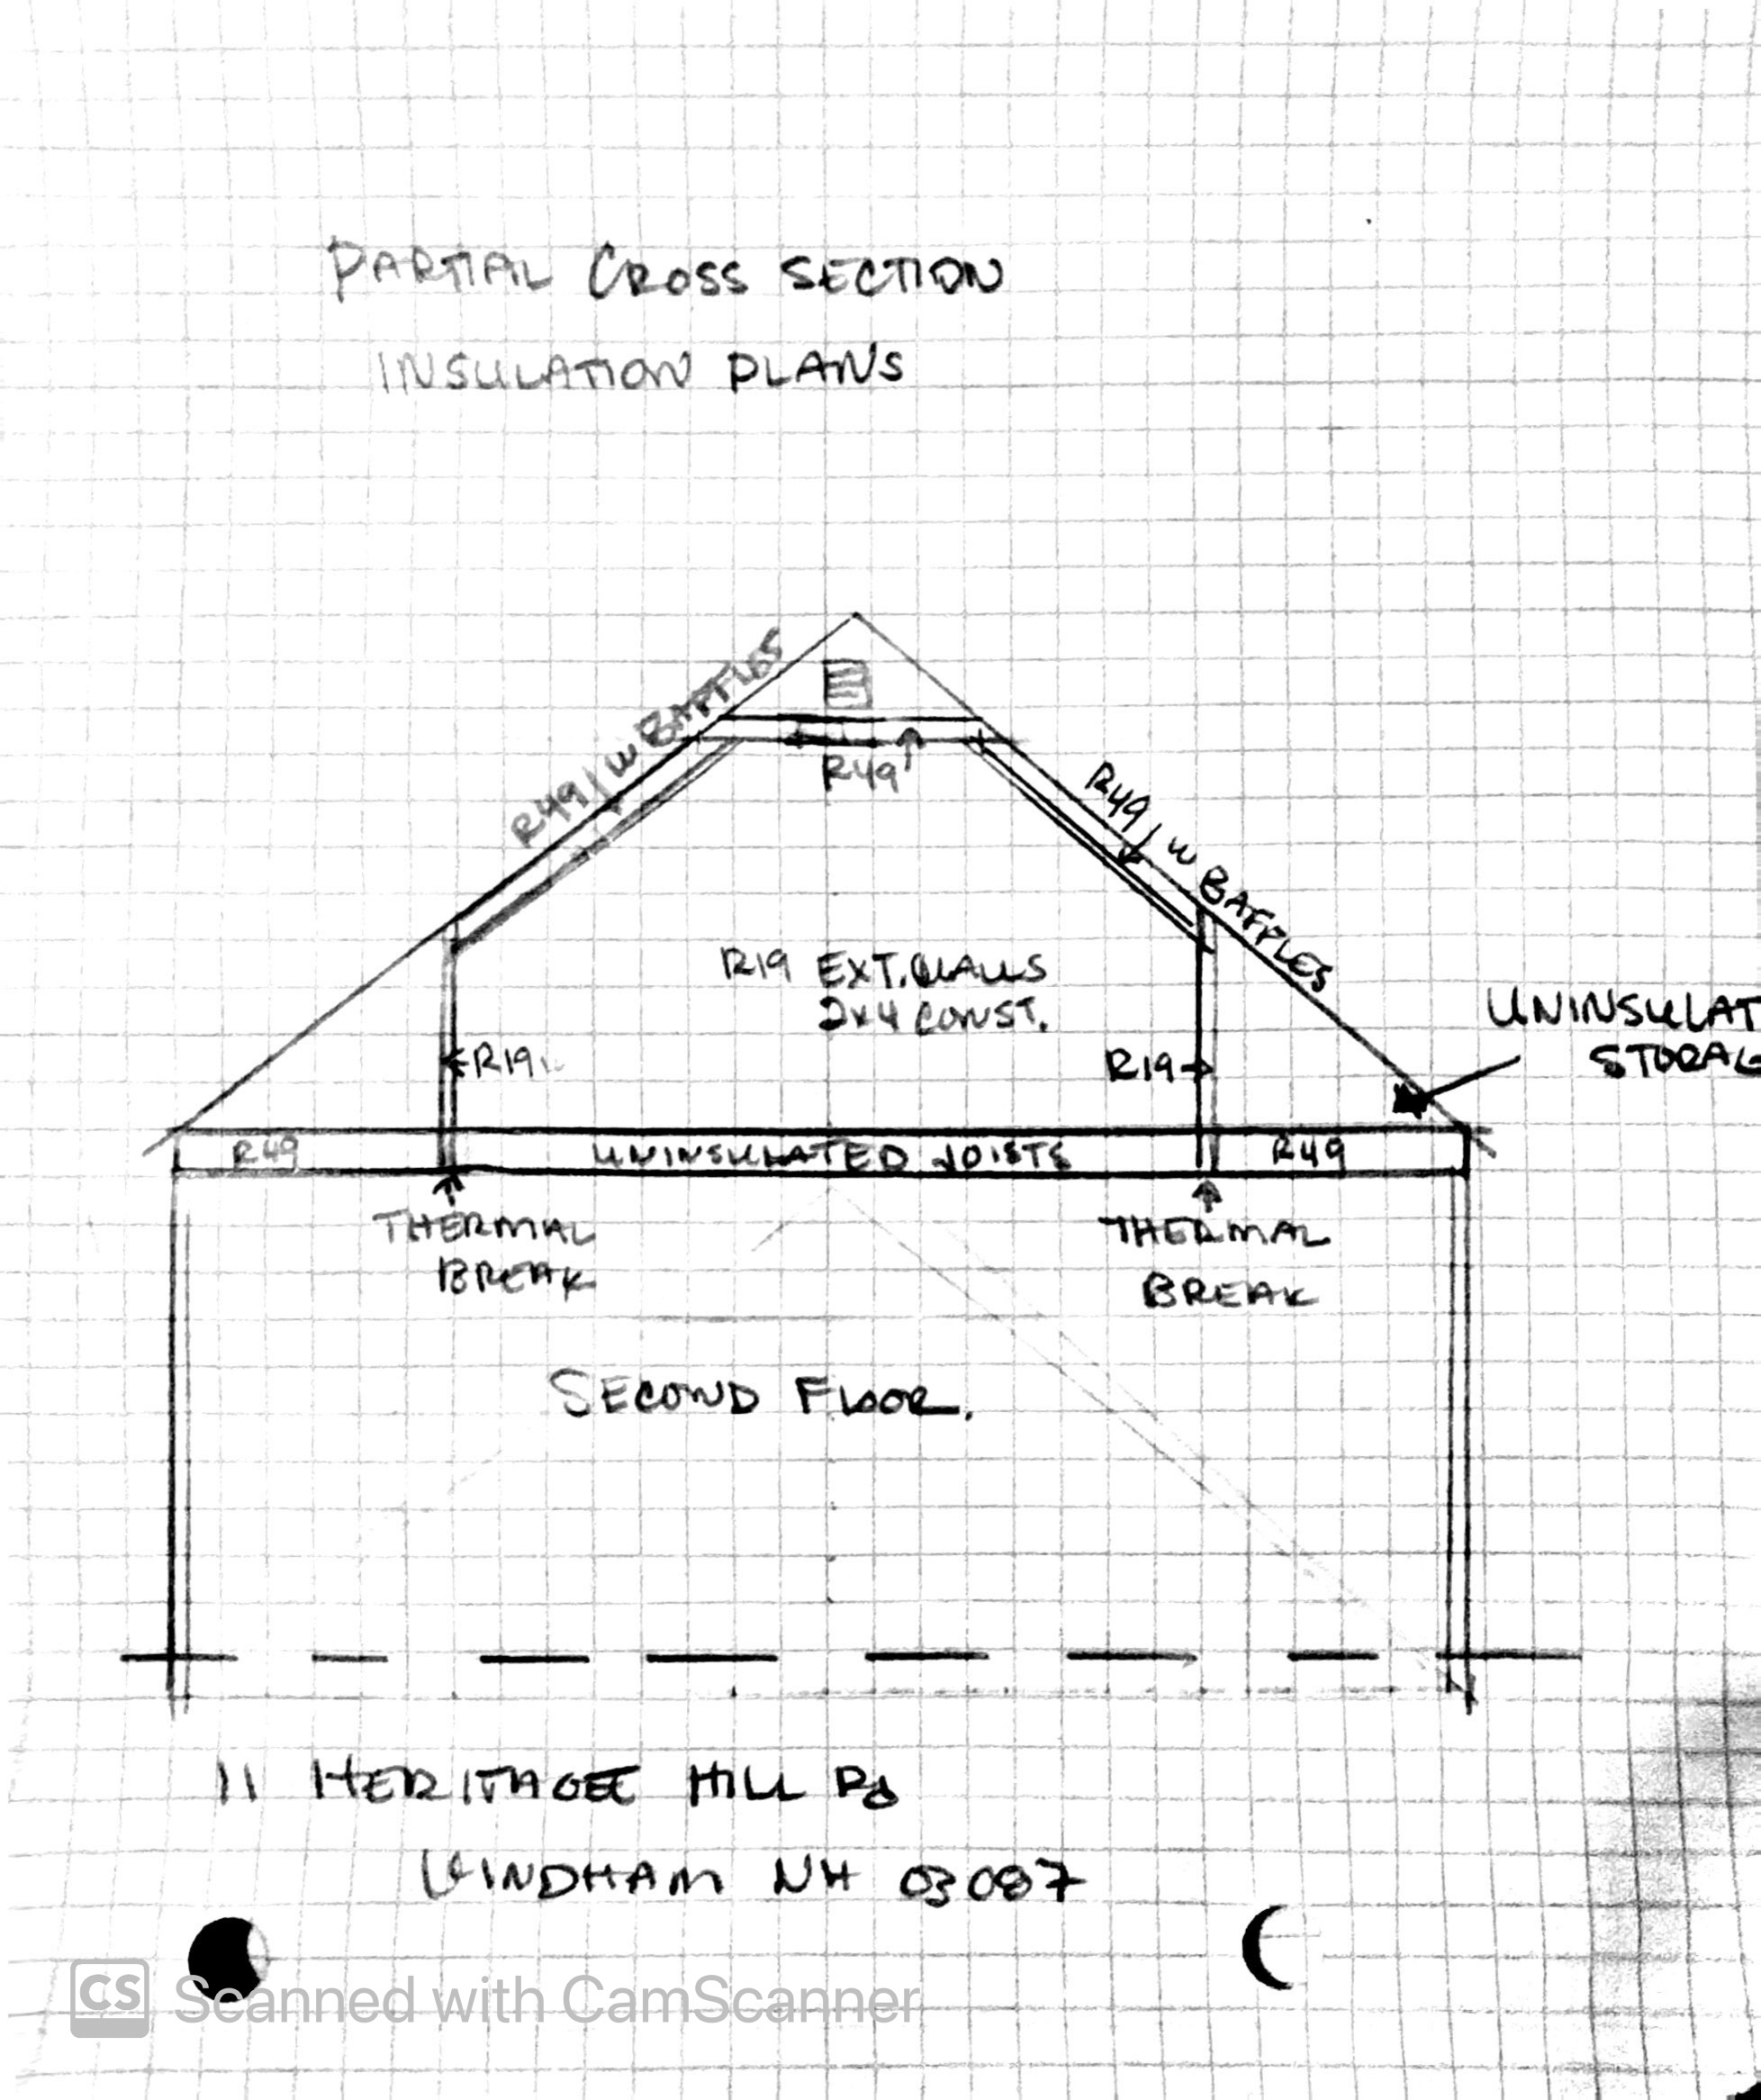 PARTIAL CROSS SECTION
INSULATION PLANS
R49 / W BAFFLES
R49
R49 / W BAFFLES
R19 EXT. WALLS
2x4 CONST.
UNINSULAT
STORAG
R19
R19
R49
UNINSULATED JOISTS
R49
THERMAL
BREAK
THERMAL
BREAK
SECOND FLOOR.
11 HERITAGE HILL Rd
WINDHAM NH 03087
CS Scanned with CamScanner